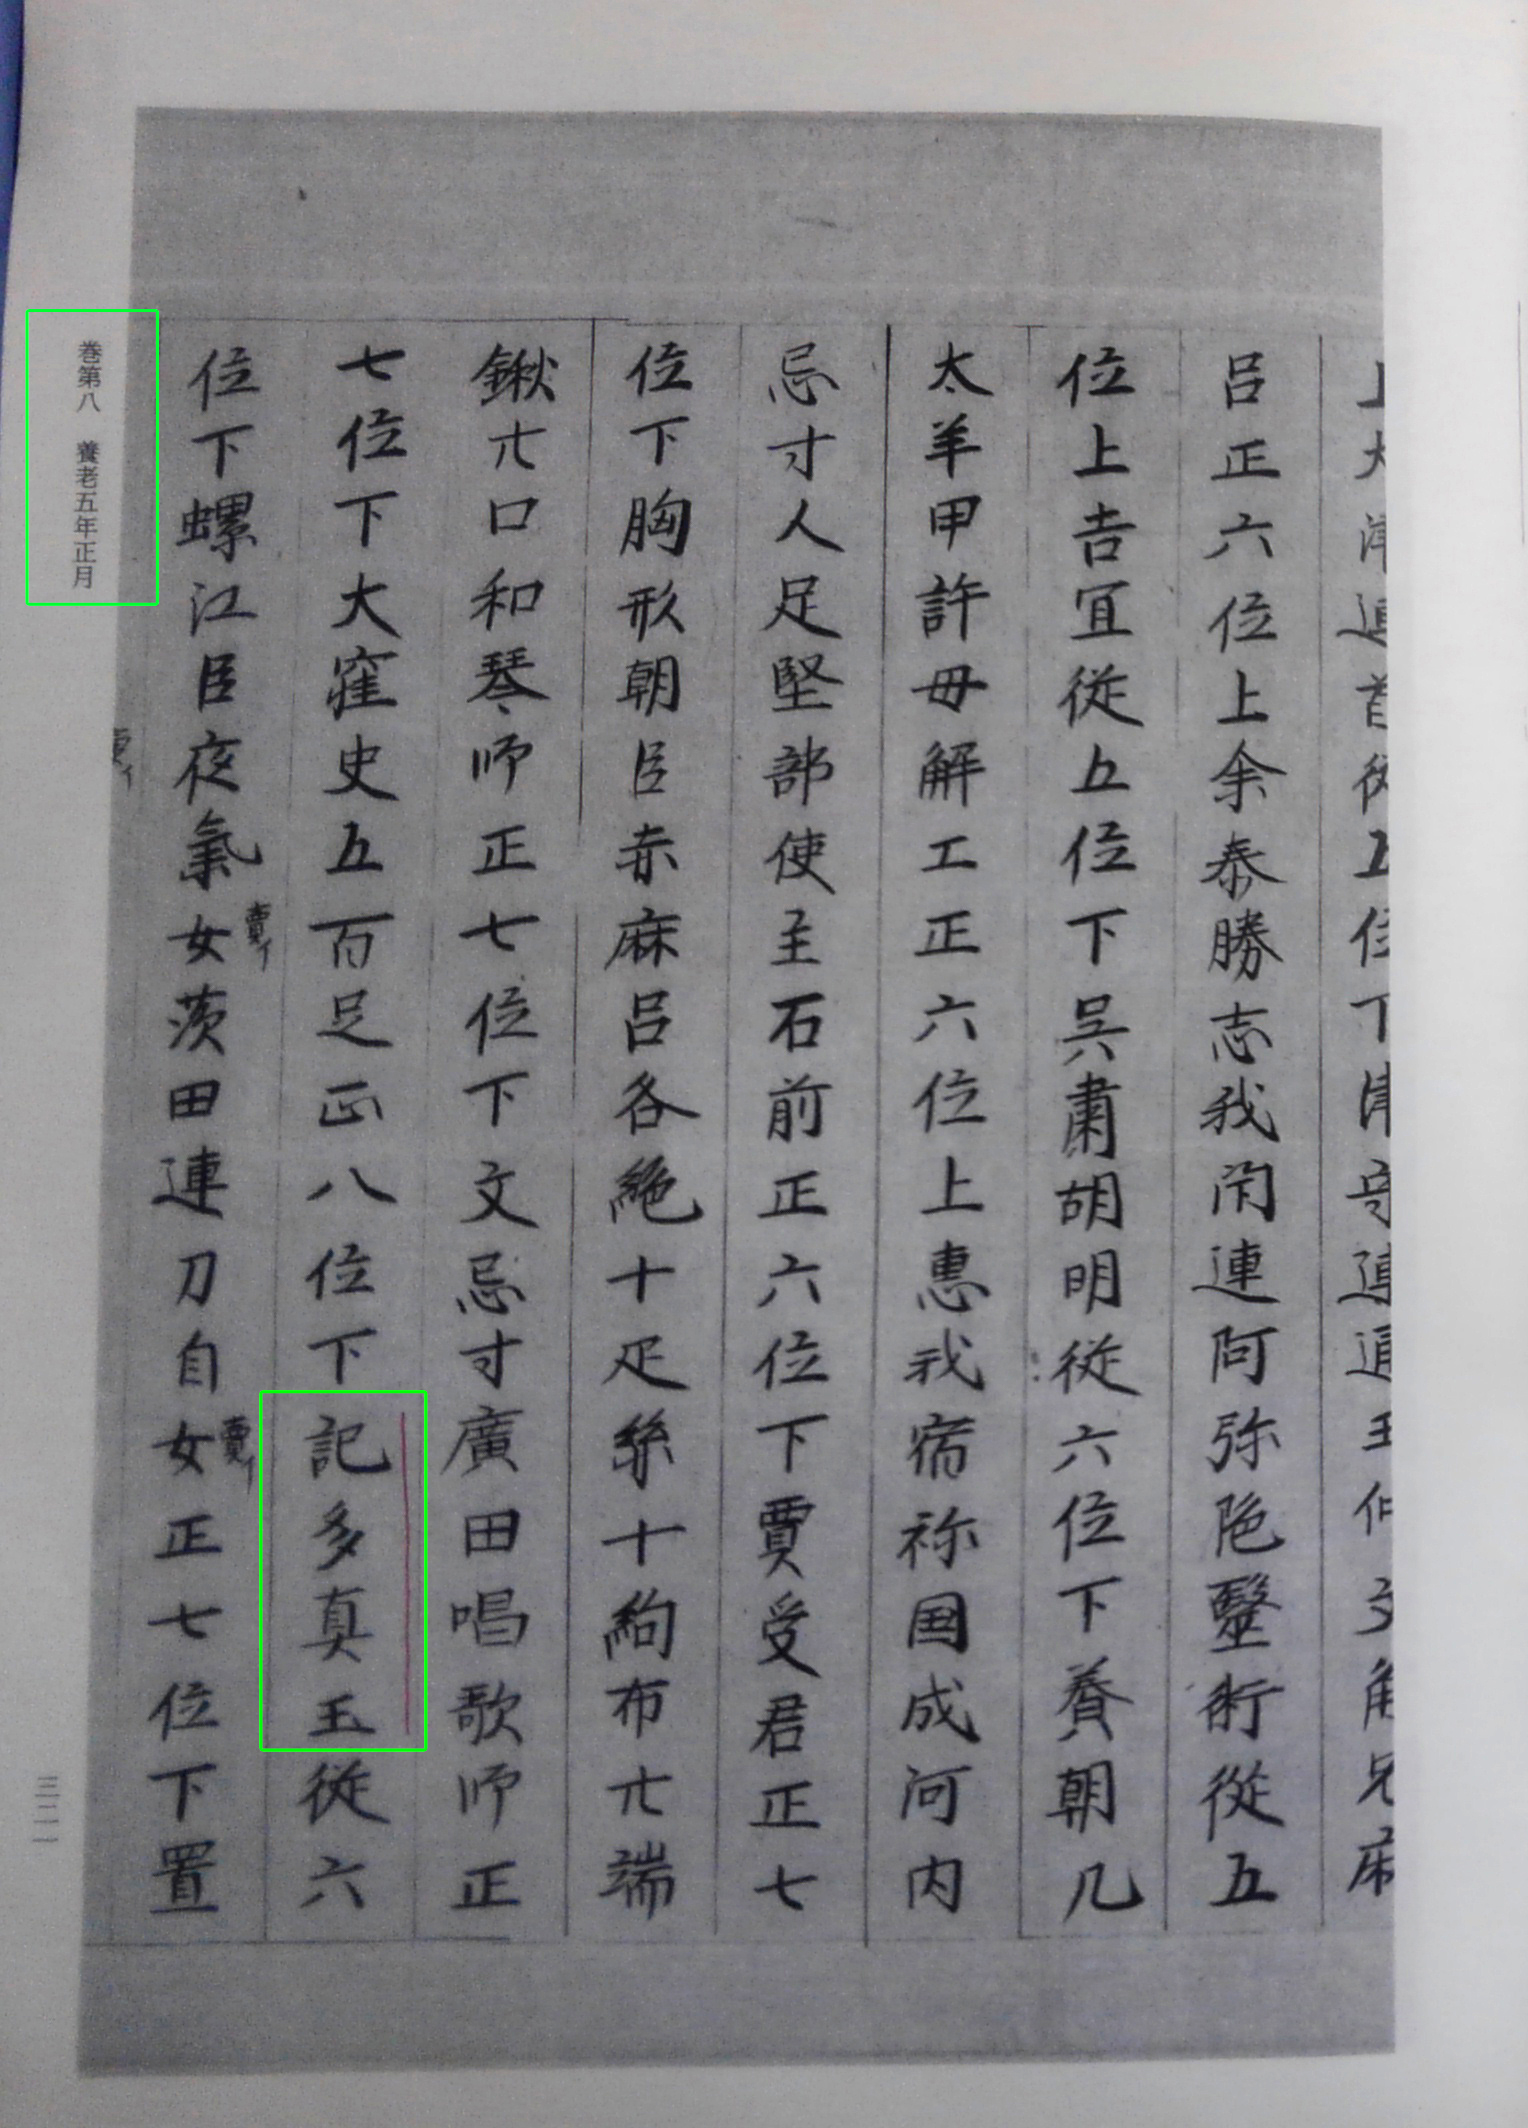 呂正六位上余泰勝志我閇連阿弥陁鑿術從五
位上吉冝從五位下呉肅胡明從六位下賛朝几
太羊甲許母解工正六位上惠我宿祢国成河内
忌寸人足堅部使主石前正六位下賈受君正七
位下胸形朝臣赤麻呂各絁十疋絲十絇布廿端
鍬廿口和琴师正七位下文忌寸廣田唱歌师正
七位下大窪史五百足正八位下記多真玉從六
位下螺江臣夜氣女茨田連刀自女正七位下置
賣イ
賣イ
巻第八　養老五年正月
三二一